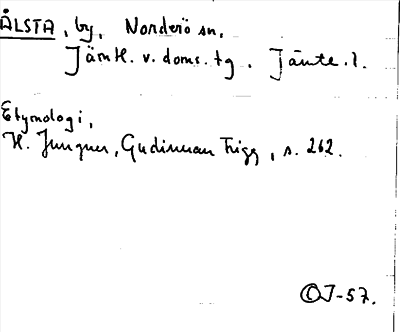 ÅLSTA, by, Norderö sn,
Jämtl. v. doms. tg. Jämte. l.
Etymologi,
H. Jungner, Gudinnan Frigg, s. 262.
OJ-57.